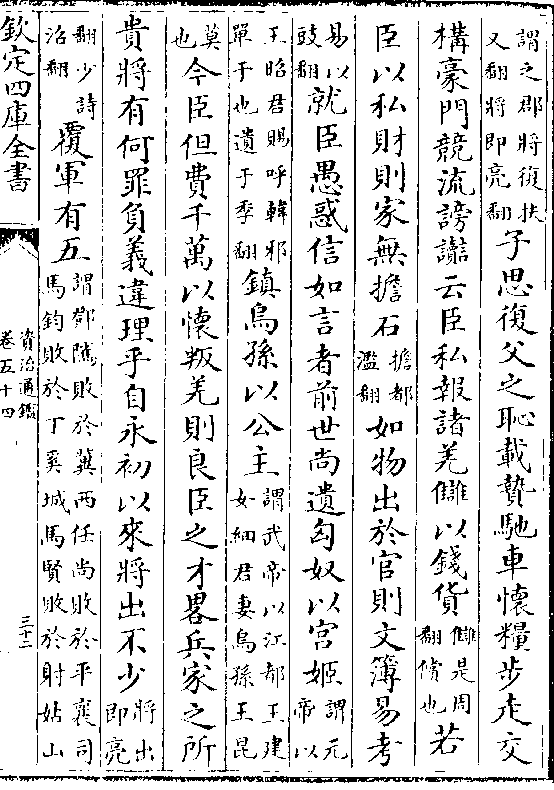 謂之郡將復扶
又翻將即亮翻
子思復父之恥載贄馳車懷糧步走交
構豪門競流謗讟云臣私報諸羌讎以錢貨
讎是周
翻償也
若
臣以私財則家無擔石
擔都
濫翻
如物出於官則文簿易考
易以
豉翻
就臣愚惑信如言者前世尚遺匈奴以宫姬
謂元
帝以
王昭君賜呼韓邪
單于也遺于季翻
鎮烏孫以公主
謂武帝以江都王建
女細君妻烏孫王昆
莫
也
今臣但費千萬以懷叛羌則良臣之才畧兵家之所
貴將有何罪負義違理乎自永初以來將出不少
將出
即亮
翻少詩
沼翻
覆軍有五
謂鄧騭敗於冀西任尚敗於平襄司
馬鈞敗於丁奚城馬賢敗於射姑山
欽定四庫全書
資治通鑑
卷五十四
三十二